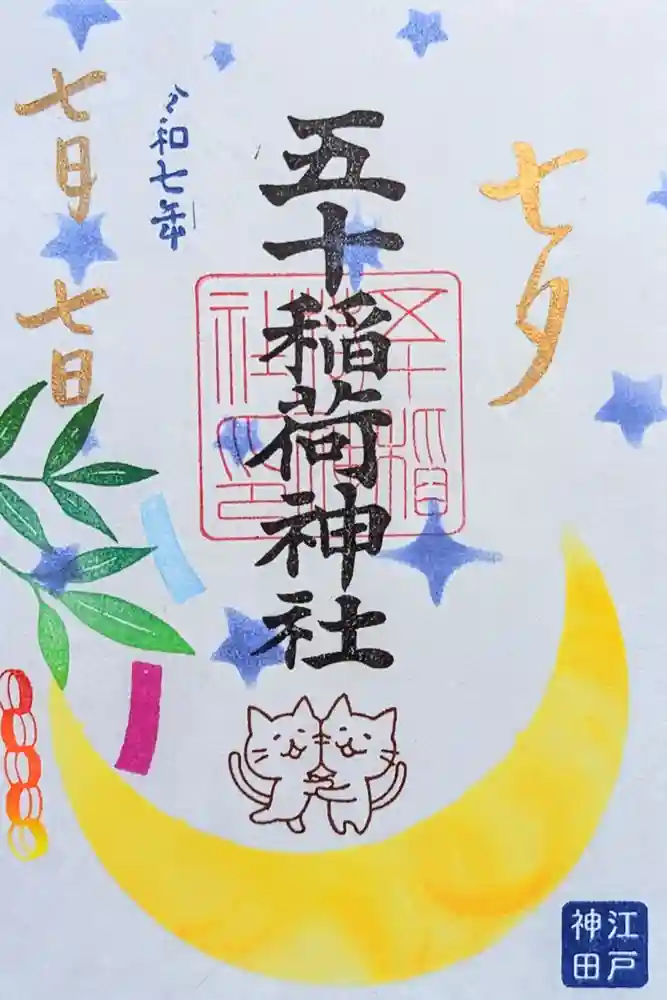 七夕
五十稲荷神社
令和七年
七月七日
江戸
神田